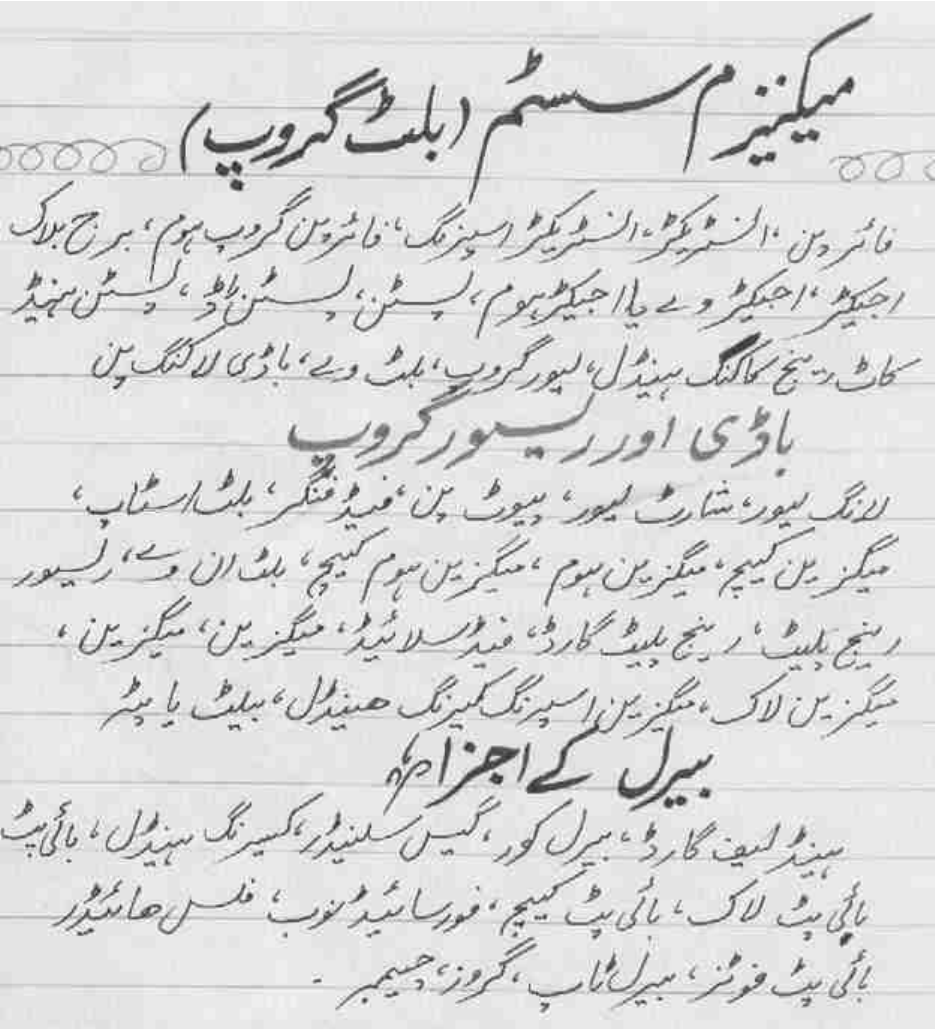 میکنیزم سسٹم (بلٹ گروپ)
فائر پن، اکسٹریکٹر، اکسٹریکٹر اسپرنگ، فائر پن گروپ ہوم، برج بلاک
اجیکٹر، اجیکٹر وے یا اجیکٹر ہوم، پسٹن، پسٹن راڈ، پسٹن ہیڈ
کاٹ رینج کاکنگ ہینڈل، لیور گروپ، بلٹ وے، باڈی لاکنگ پن
باڈی اور رسیور گروپ
لانگ لیور، شارٹ لیور، پیوٹ پن، فیڈ فنگر، بلٹ اسٹاپ،
میگزین کیچ، میگزین ہوم، میگزین ہوم کیچ، بلٹ ان وے، رسیور
رینج پلیٹ، رینج پلیٹ گارڈ، فیڈ سلائیڈ، میگزین، میگزین،
میگزین لاک، میگزین اسپرنگ کیرنگ ھینڈل، بیلٹ یا پٹہ
بیرل کے اجزاء
ہینڈ لیف گارڈ، بیرل کور، گیس سلنیڈر، کیرنگ ہینڈل، بائی پٹ
بائی پٹ لاک، بائی پٹ کیچ، فورسائیڈ نوب، فلس ھائیڈر
بائی پٹ فوٹز، بیرل ٹاپ، گروز، چیمبر ۔